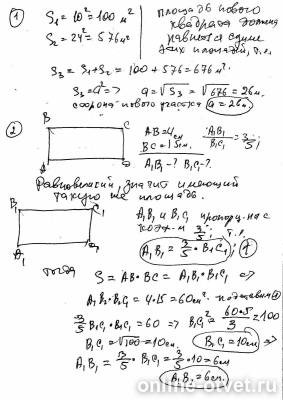 ① S₁ = 10² = 100 м²
S₂ = 24² = 576 м²
площадь нового
квадрата должна
равняться сумме
этих площадей, т.е.
S₃ = S₁ + S₂ = 100 + 576 = 676 м².
S₃ = a² => a = √S₃ = √676 = 26м.
сторона нового участка a = 26м.
②
B C
AB = 4см
BC = 15см.
A₁B₁/B₁C₁ = 3/5;
A₁B₁ - ? B₁C₁ - ?
Равновеликий, значит имеющий
такую же площадь.
B₁ C₁
A₁B₁ и B₁C₁
3/5; т.е.
A₁B₁ = 3/5 · B₁C₁
A₁
тогда
S = AB · BC = A₁B₁ · B₁C₁ =>
A₁B₁ · B₁C₁ = 4·15 = 60см². подставим
3/5 B₁C₁ · B₁C₁ = 60 => B₁C₁² = 60·5/3 = 100
B₁C₁ = √100 = 10см. B₁C₁ = 10см =>
A₁B₁ = 3/5 · B₁C₁ = 3/5 · 10 = 6см
A₁B₁ = 6см.
online-otvet.ru